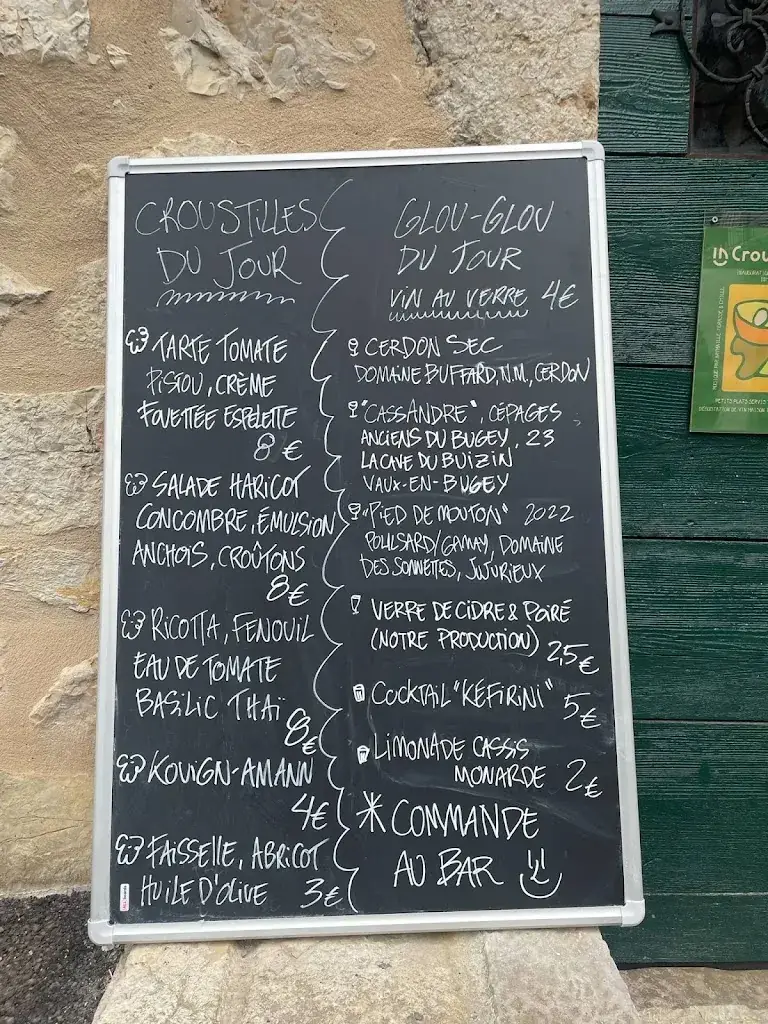 CROUSTILLES
DU JOUR
TARTE TOMATE
PISTOU, CRÈME
FOUETTÉE ESPELETTE
8 €
SALADE HARICOT
CONCOMBRE, ÉMULSION
ANCHOIS, CROÛTONS
8€
RICOTTA, FENOUIL
EAU DE TOMATE
BASILIC THAÏ
8€
KOUIGN-AMANN
4€
FAISSELLE, ABRICOT
HUILE D'OLIVE 3€
GLOU-GLOU
DU JOUR
VIN AU VERRE 4€
CERDON SEC
DOMAINE BUFFARD, N.M., CERDON
"CASSANDRE", CÉPAGES
ANCIENS DU BUGEY, 23
LA CAVE DU BUIZIN
VAUX-EN-BUGEY
"PIED DE MOUTON" 2022
POULSARD/GAMAY, DOMAINE
DES SONNETTES, JUJURIEUX
VERRE DE CIDRE & POIRÉ
(NOTRE PRODUCTION) 2,5€
COCKTAIL "KEFIRINI" 5€
LIMONADE CASSIS
MONARDE 2€
* COMMANDE
AU BAR
Crou
PETITS PLATS SERVIS
DÉGUSTATION DE VIN MAISON